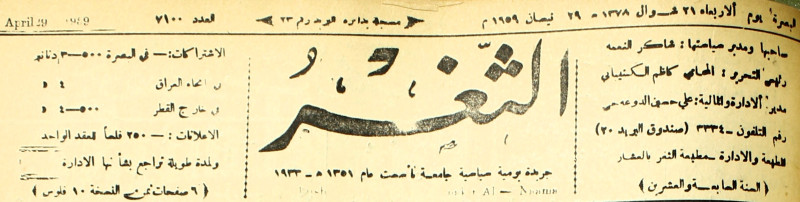 البصرة يوم الاربعاء ٢١ شوال ١٣٧٨ هـ ٢٩ نيسان ١٩٥٩ م
﴿ مسجلة بدائرة البريد رقم ٢٣ ﴾
العدد ٧١٠٠
April 29 1959
صاحبها ومدير سياستها : شاكر النعمه
رئيس التحرير : المحامي كاظم
مدير الادارة والمالية : علي حسين
رقم التلفون – ٣٣٣٤ (صندوق البريد ٢٠)
الطبعة والادارة – مطبعة الثغر بالعشار
( السنة السابعة والعشرين )
الثغر
جريدة يومية سياسية جامعة تأسست عام ١٣٥١ هـ ١٩٣٣
الاشتراكات :— في البصرة ٥٠٠—٣ دنانير
في انحاء العراق ٤ »
في خارج القطر ٥٠٠—٤ »
الاعلانات :— ٢٥٠ فلساً للعقد الواحد
ولمدة طويلة تراجع بشأنها الادارة
( ٦ صفحات ثمن النسخة ١٠ فلوس )